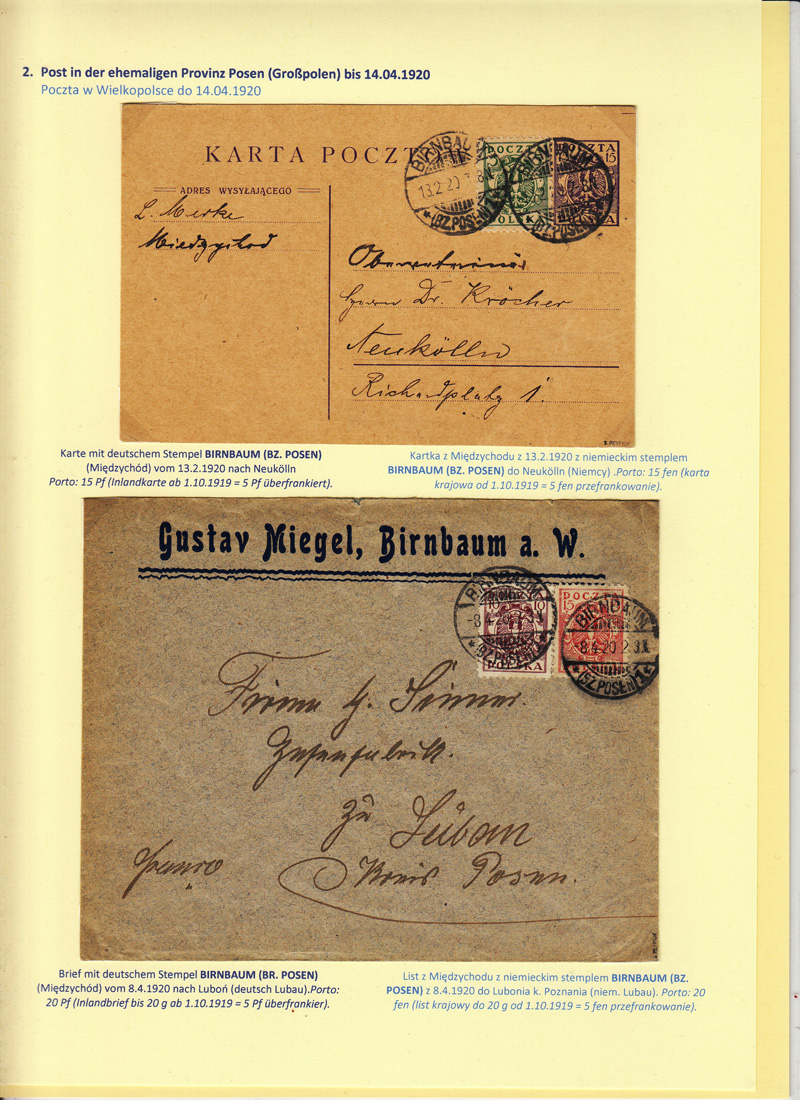 2. Post in der ehemaligen Provinz Posen (Großpolen) bis 14.04.1920
Poczta w Wielkopolsce do 14.04.1920
KARTA POCZT
ADRES WYSYŁAJĄCEGO
L. Merke
Międzychod
BIRNBAUM
13.2.20
(BZ.POSEN)
POCZTA
15
Herrn Dr. Kröcher
Neukölln
Richardplatz 1.
Karte mit deutschem Stempel BIRNBAUM (BZ. POSEN)
(Międzychód) vom 13.2.1920 nach Neukölln
Porto: 15 Pf (Inlandkarte ab 1.10.1919 = 5 Pf überfrankiert).
Kartka z Międzychodu z 13.2.1920 z niemieckim stemplem
BIRNBAUM (BZ. POSEN) do Neukölln (Niemcy) .Porto: 15 fen (karta
krajowa od 1.10.1919 = 5 fen przefrankowanie).
Gustav Miegel, Birnbaum a. W.
BIRNBAUM
-8.4.20
(BZ.POSEN)
10 10
POCZTA
15
BIRNBAUM
-8.4.20
(BZ.POSEN)
Firma
zu Luban
Kreis Posen.
Brief mit deutschem Stempel BIRNBAUM (BR. POSEN)
(Międzychód) vom 8.4.1920 nach Luboń (deutsch Lubau).Porto:
20 Pf (Inlandbrief bis 20 g ab 1.10.1919 = 5 Pf überfrankier).
List z Międzychodu z niemieckim stemplem BIRNBAUM (BZ.
POSEN) z 8.4.1920 do Lubonia k. Poznania (niem. Lubau). Porto: 20
fen (list krajowy do 20 g od 1.10.1919 = 5 fen przefrankowanie).